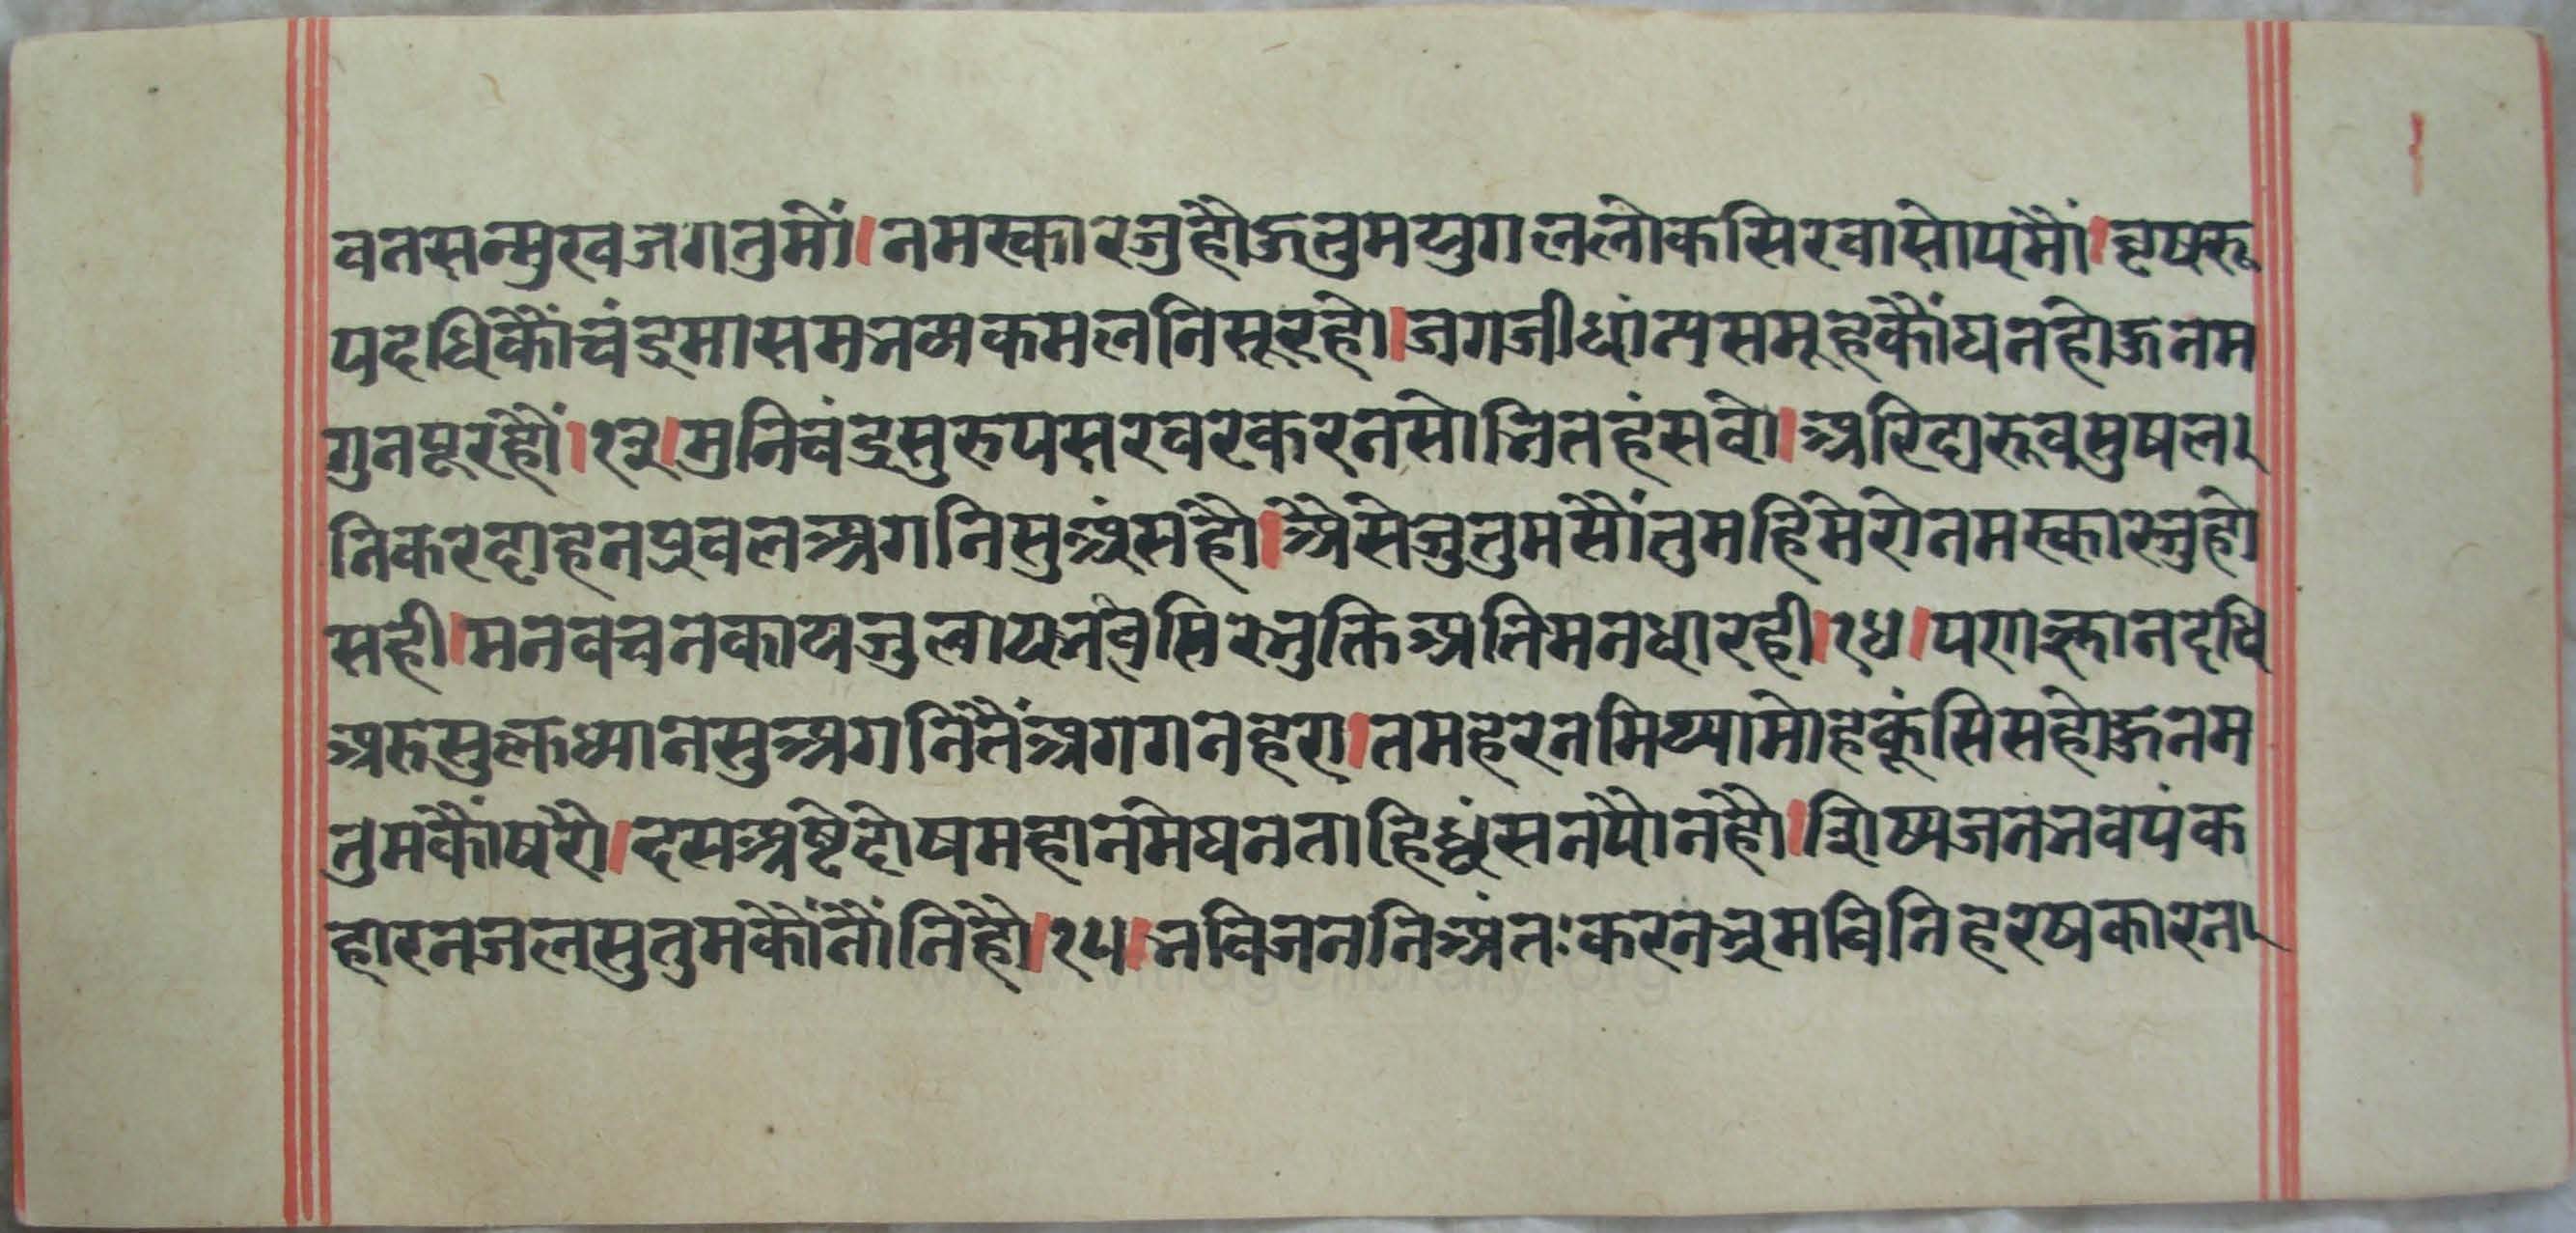 वनसन्मुखजगतुमौं।नमस्कारजुहौऊतुमयुगललोकसिरवासोपमौं।वृषरू
पदधिकौंचंद्रमासमनव्यकमलनिसूरहो।जगजीधांन्यसमूहकौंघनहोऊनम
गुनपूरहौं।१३।मुनिवंद्रसुरुपसरवरकरनसोनितहंसवो।अरिदारूवसुषल
निकरदाहनप्रबलअगनिसुअंसहौ।अैसेजुतुमसौंतुमहिमेरोनमस्कारजुहो
सही।मनवचनकायजुलायनविसिरनुक्तिअतिमनधारही।१४।परगास्तानदधि
अरुसुक्लध्यानसुअगनितैंअगगनहरा।तमहरनमिथ्यामोहकूंसिसहोऊनम
तुमकौंषरो।दसअष्टदोषमहानमेघनताहिध्वंसनपौनहौ।शिष्यजननवपंक
हारनजलसुतुमकौंनौंनिहौ।१५।नविजननिअंतःकरनभ्रमविनिहरषकारन